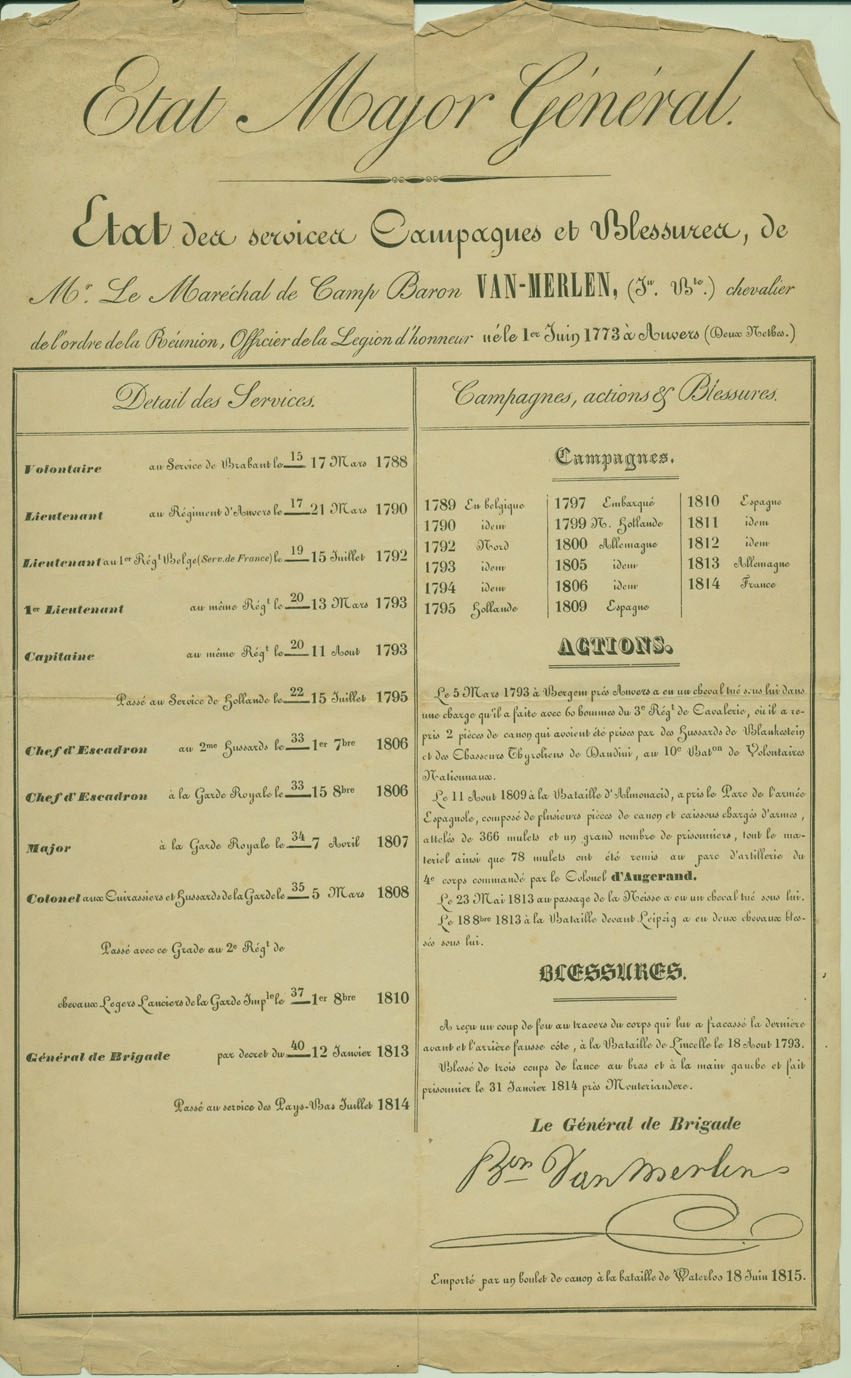 Etat Major Général.
Etat des services Campagnes et Blessures, de
Mr. Le Maréchal de Camp Baron VAN-MERLEN, (Jn. Bte.) chevalier
de l'ordre de la Réunion, Officier de la Legion d'honneur né le 1er Juin 1773 à Anvers (Deux Nethes.)
Detail des Services.
Volontaire au Service de Brabant le 15 17 Mars 1788
Lieutenant au Régiment d'Anvers le 17 21 Mars 1790
Lieutenant au 1er Régt Belge (Serv. de France) le 19 15 Juillet 1792
1er Lieutenant au même Régt le 20 13 Mars 1793
Capitaine au même Régt le 20 11 Aout 1793
Passé au Service de Hollande le 22 15 Juillet 1795
Chef d'Escadron au 2me Hussards le 33 1er 7bre 1806
Chef d'Escadron à la Garde Royale le 33 15 8bre 1806
Major à la Garde Royale le 34 7 Avril 1807
Colonel aux Cuirassiers et Hussards de la Garde le 35 5 Mars 1808
Passé avec ce Grade au 2e Régt de
chevaux Legers Lanciers de la Garde Imple le 37 1er 8bre 1810
Général de Brigade par decret du 40 12 Janvier 1813
Passé au service des Pays-Bas Juillet 1814
Campagnes, actions & Blessures.
Campagnes.
1789 En belgique
1790 idem
1792 Nord
1793 idem
1794 idem
1795 Hollande
1797 Embarqué
1799 N. Hollande
1800 Allemagne
1805 idem
1806 idem
1809 Espagne
1810 Espagne
1811 idem
1812 idem
1813 Allemagne
1814 France
ACTIONS.
Le 5 Mars 1793 à Bergem prés Anvers a eu un cheval tué sous lui dans
une charge qu'il a faite avec 60 hommes du 3e Régt de Cavalerie, où il a re-
pris 2 pièces de canon qui avoient été prises par des Hussards de Blankestein
et des Chasseurs Thyroliens de Dandini, au 10e Baton de Volontaires
Nationnaux.
Le 11 Aout 1809 à la Bataille d'Almonacid, a pris le Parc de l'armée
Espagnole, composé de plusieurs pièces de canon et caissons chargés d'armes,
attelés de 366 mulets et un grand nombre de prisonniers, tout le ma-
teriel ainsi que 78 mulets ont été remis au parc d'artillerie du
4e corps commandé par le Colonel d'Augerand.
Le 23 Mai 1813 au passage de la Neisse a eu un cheval tué sous lui.
Le 18 8bre 1813 à la Bataille devant Leipzig a eu deux chevaux bles-
sés sous lui.
BLESSURES.
A reçu un coup de feu au travers du corps qui lui a fracassé la dernière
avant et l'arrière fausse côte, à la Bataille de Lincelle le 18 Aout 1793.
Blessé de trois coups de lance au bras et à la main gauche et fait
prisonnier le 31 Janvier 1814 près Monteriandere.
Le Général de Brigade
Bon Van Merlen
Emporté par un boulet de canon à la bataille de Waterloo 18 Juin 1815.